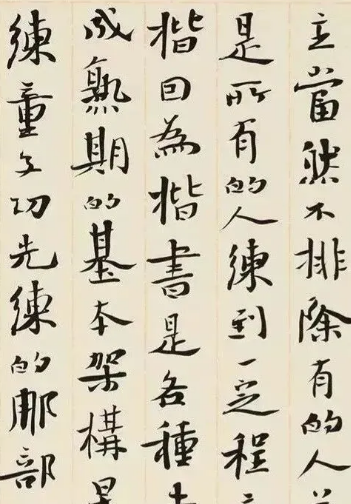 立當然不排除有的人
是所有的人練到一定程
楷因為楷書是各種
成熟期的基本架構
練童子功先練的那部